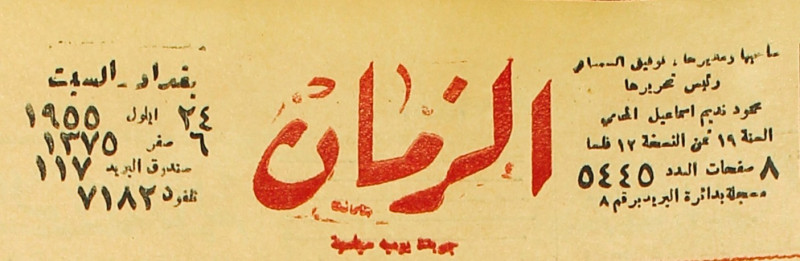 صاحبها ومديرها : توفيق السمعاني
رئيس تحريرها
محمود نديم اسماعيل المحامي
السنة ١٩ ثمن النسخة ١٢ فلسا
٨ صفحات العدد ٥٤٤٥
مسجلة بدائرة البريد برقم ٨
الزمان
جريدة يومية سياسية
بغداد ـ السبت
٢٤ ايلول ١٩٥٥
٦ صفر ١٣٧٥
صندوق البريد ١١٧
تلفون ٧١٨٢